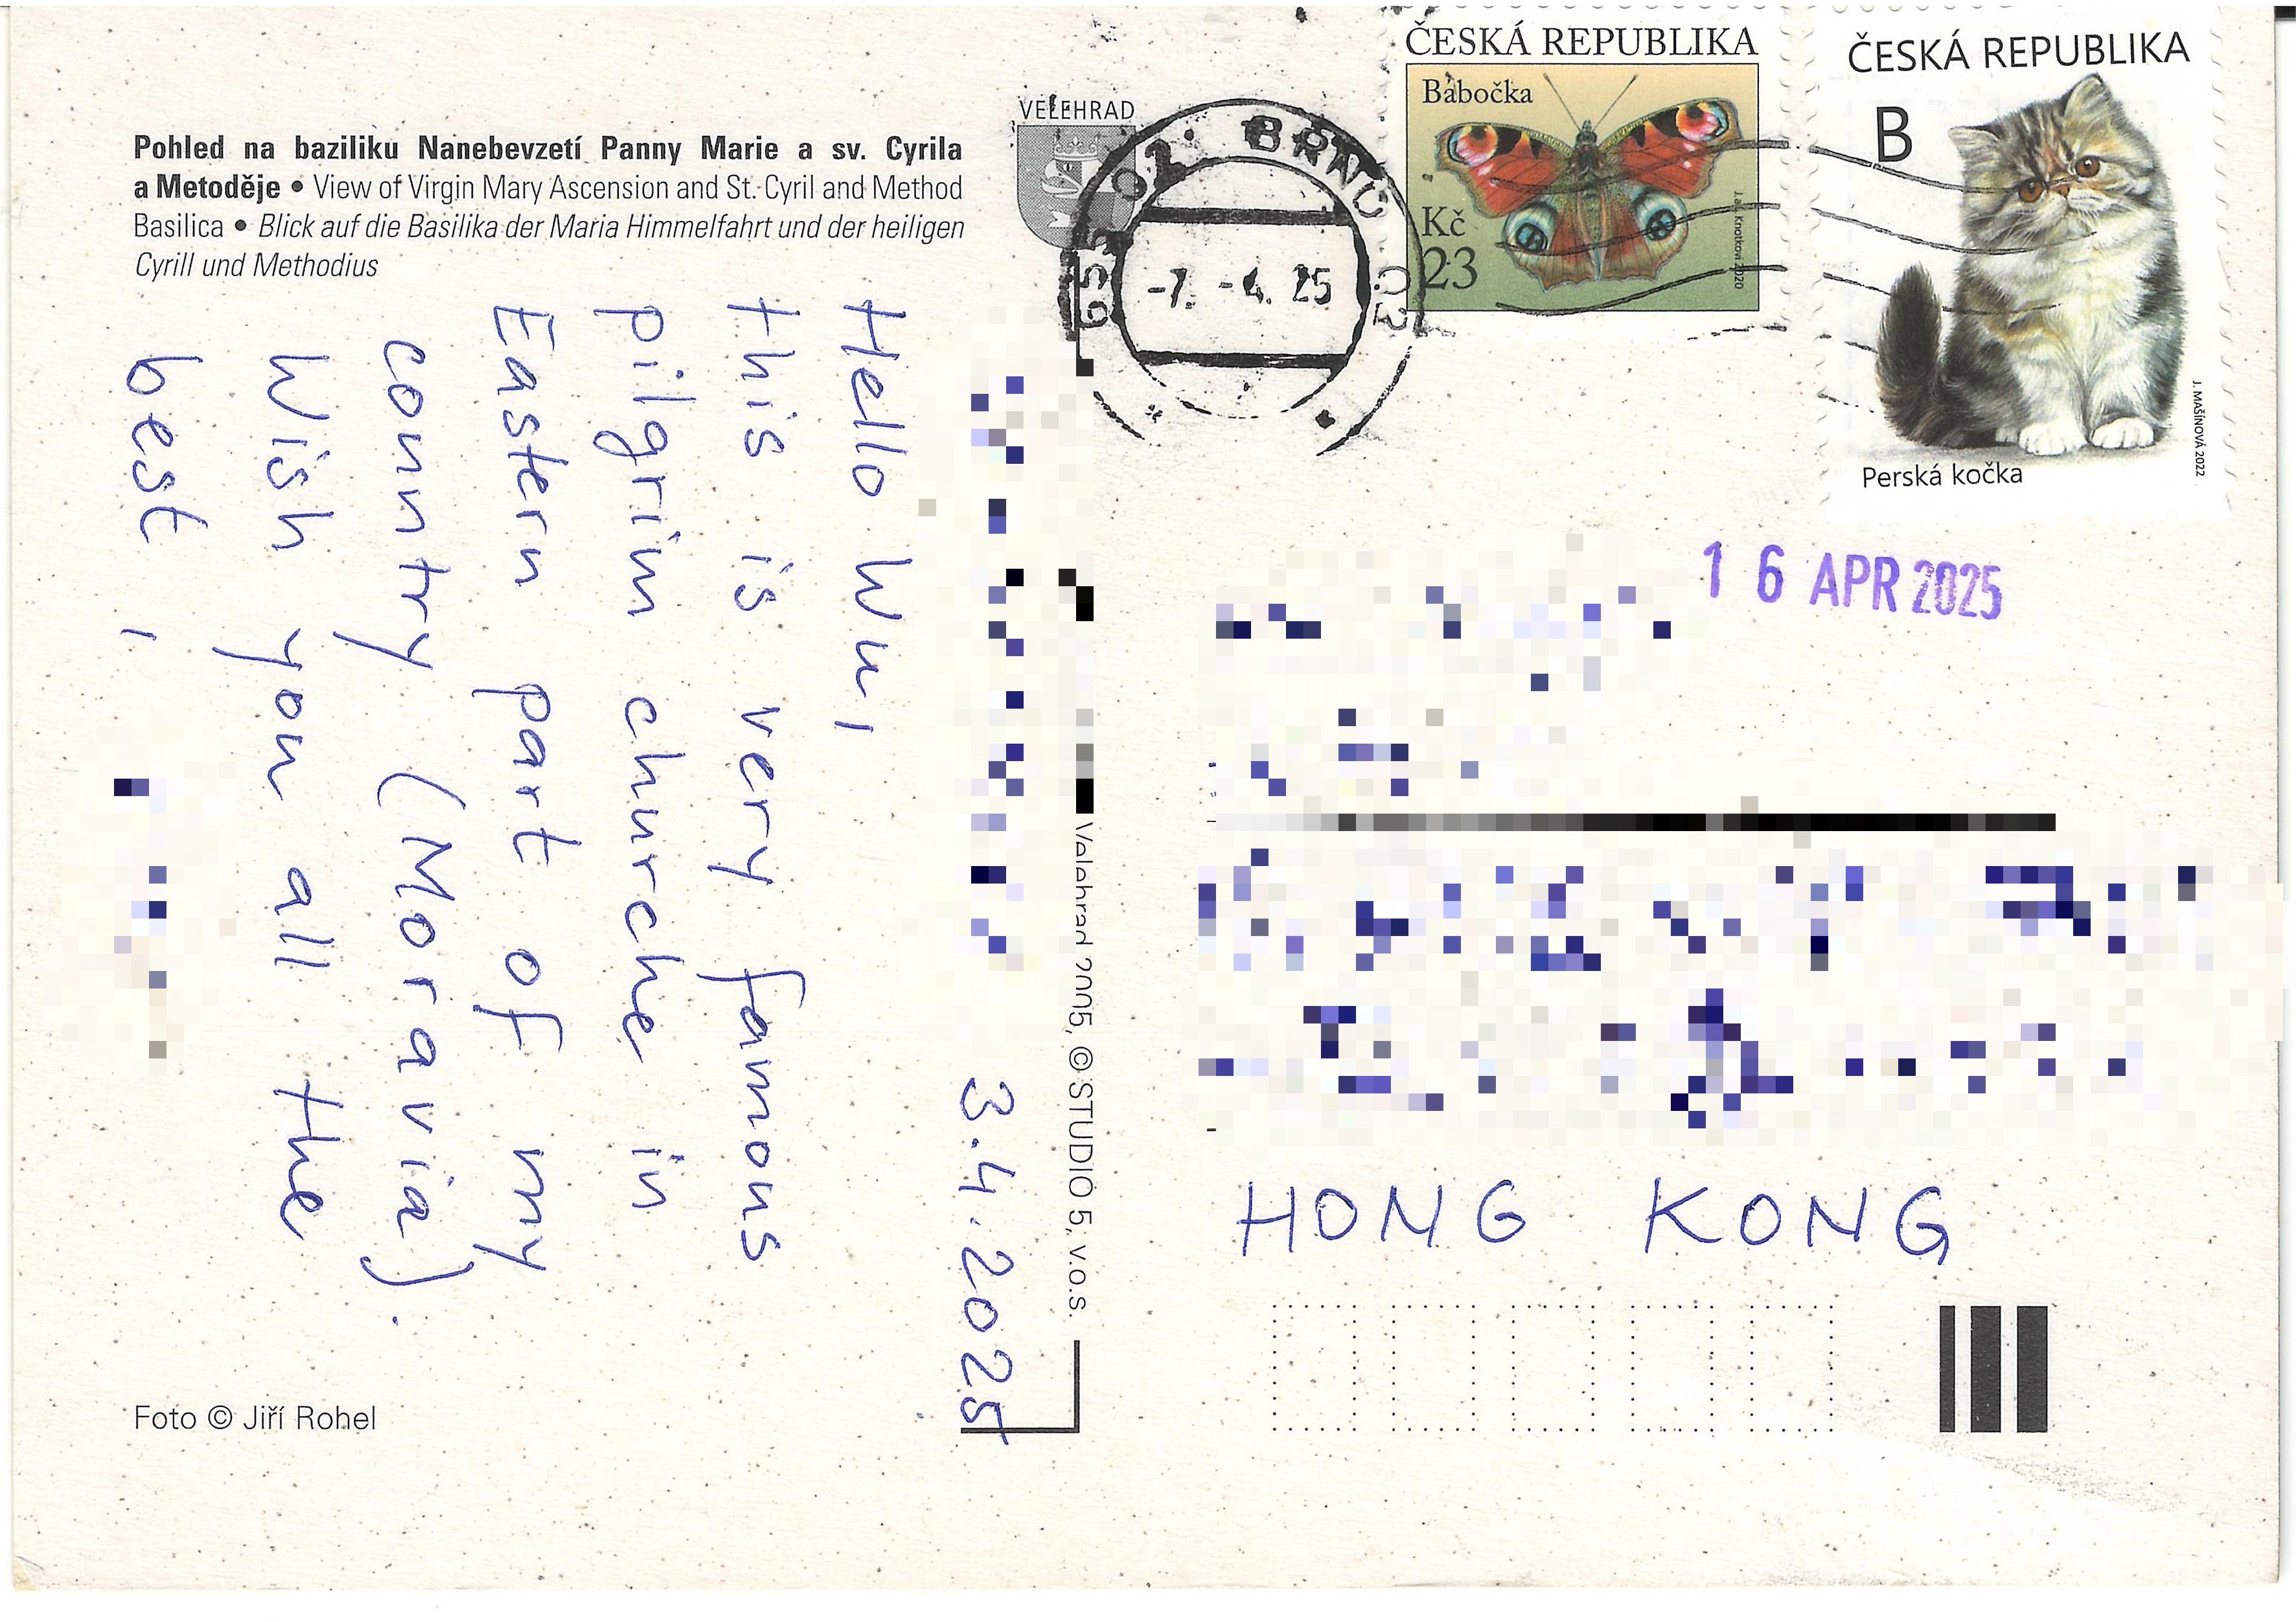 Pohled na baziliku Nanebevzetí Panny Marie a sv. Cyrila
a Metoděje • View of Virgin Mary Ascension and St. Cyril and Method
Basilica • Blick auf die Basilika der Maria Himmelfahrt und der heiligen
Cyrill und Methodius
VELEHRAD
BRNO 02
-7. -4. 25
ČESKÁ REPUBLIKA
Babočka
Kč
23
ČESKÁ REPUBLIKA
B
Perská kočka
J. MAŠÍNOVÁ 2022
16 APR 2025
3.4.2025
Hello Wu,
this is very famous
pilgrim churche in
Eastern part of my
country (Moravia).
Wish you all the
best,
Velehrad 2005, © STUDIO 5, v.o.s.
HONG KONG
Foto © Jiří Rohel